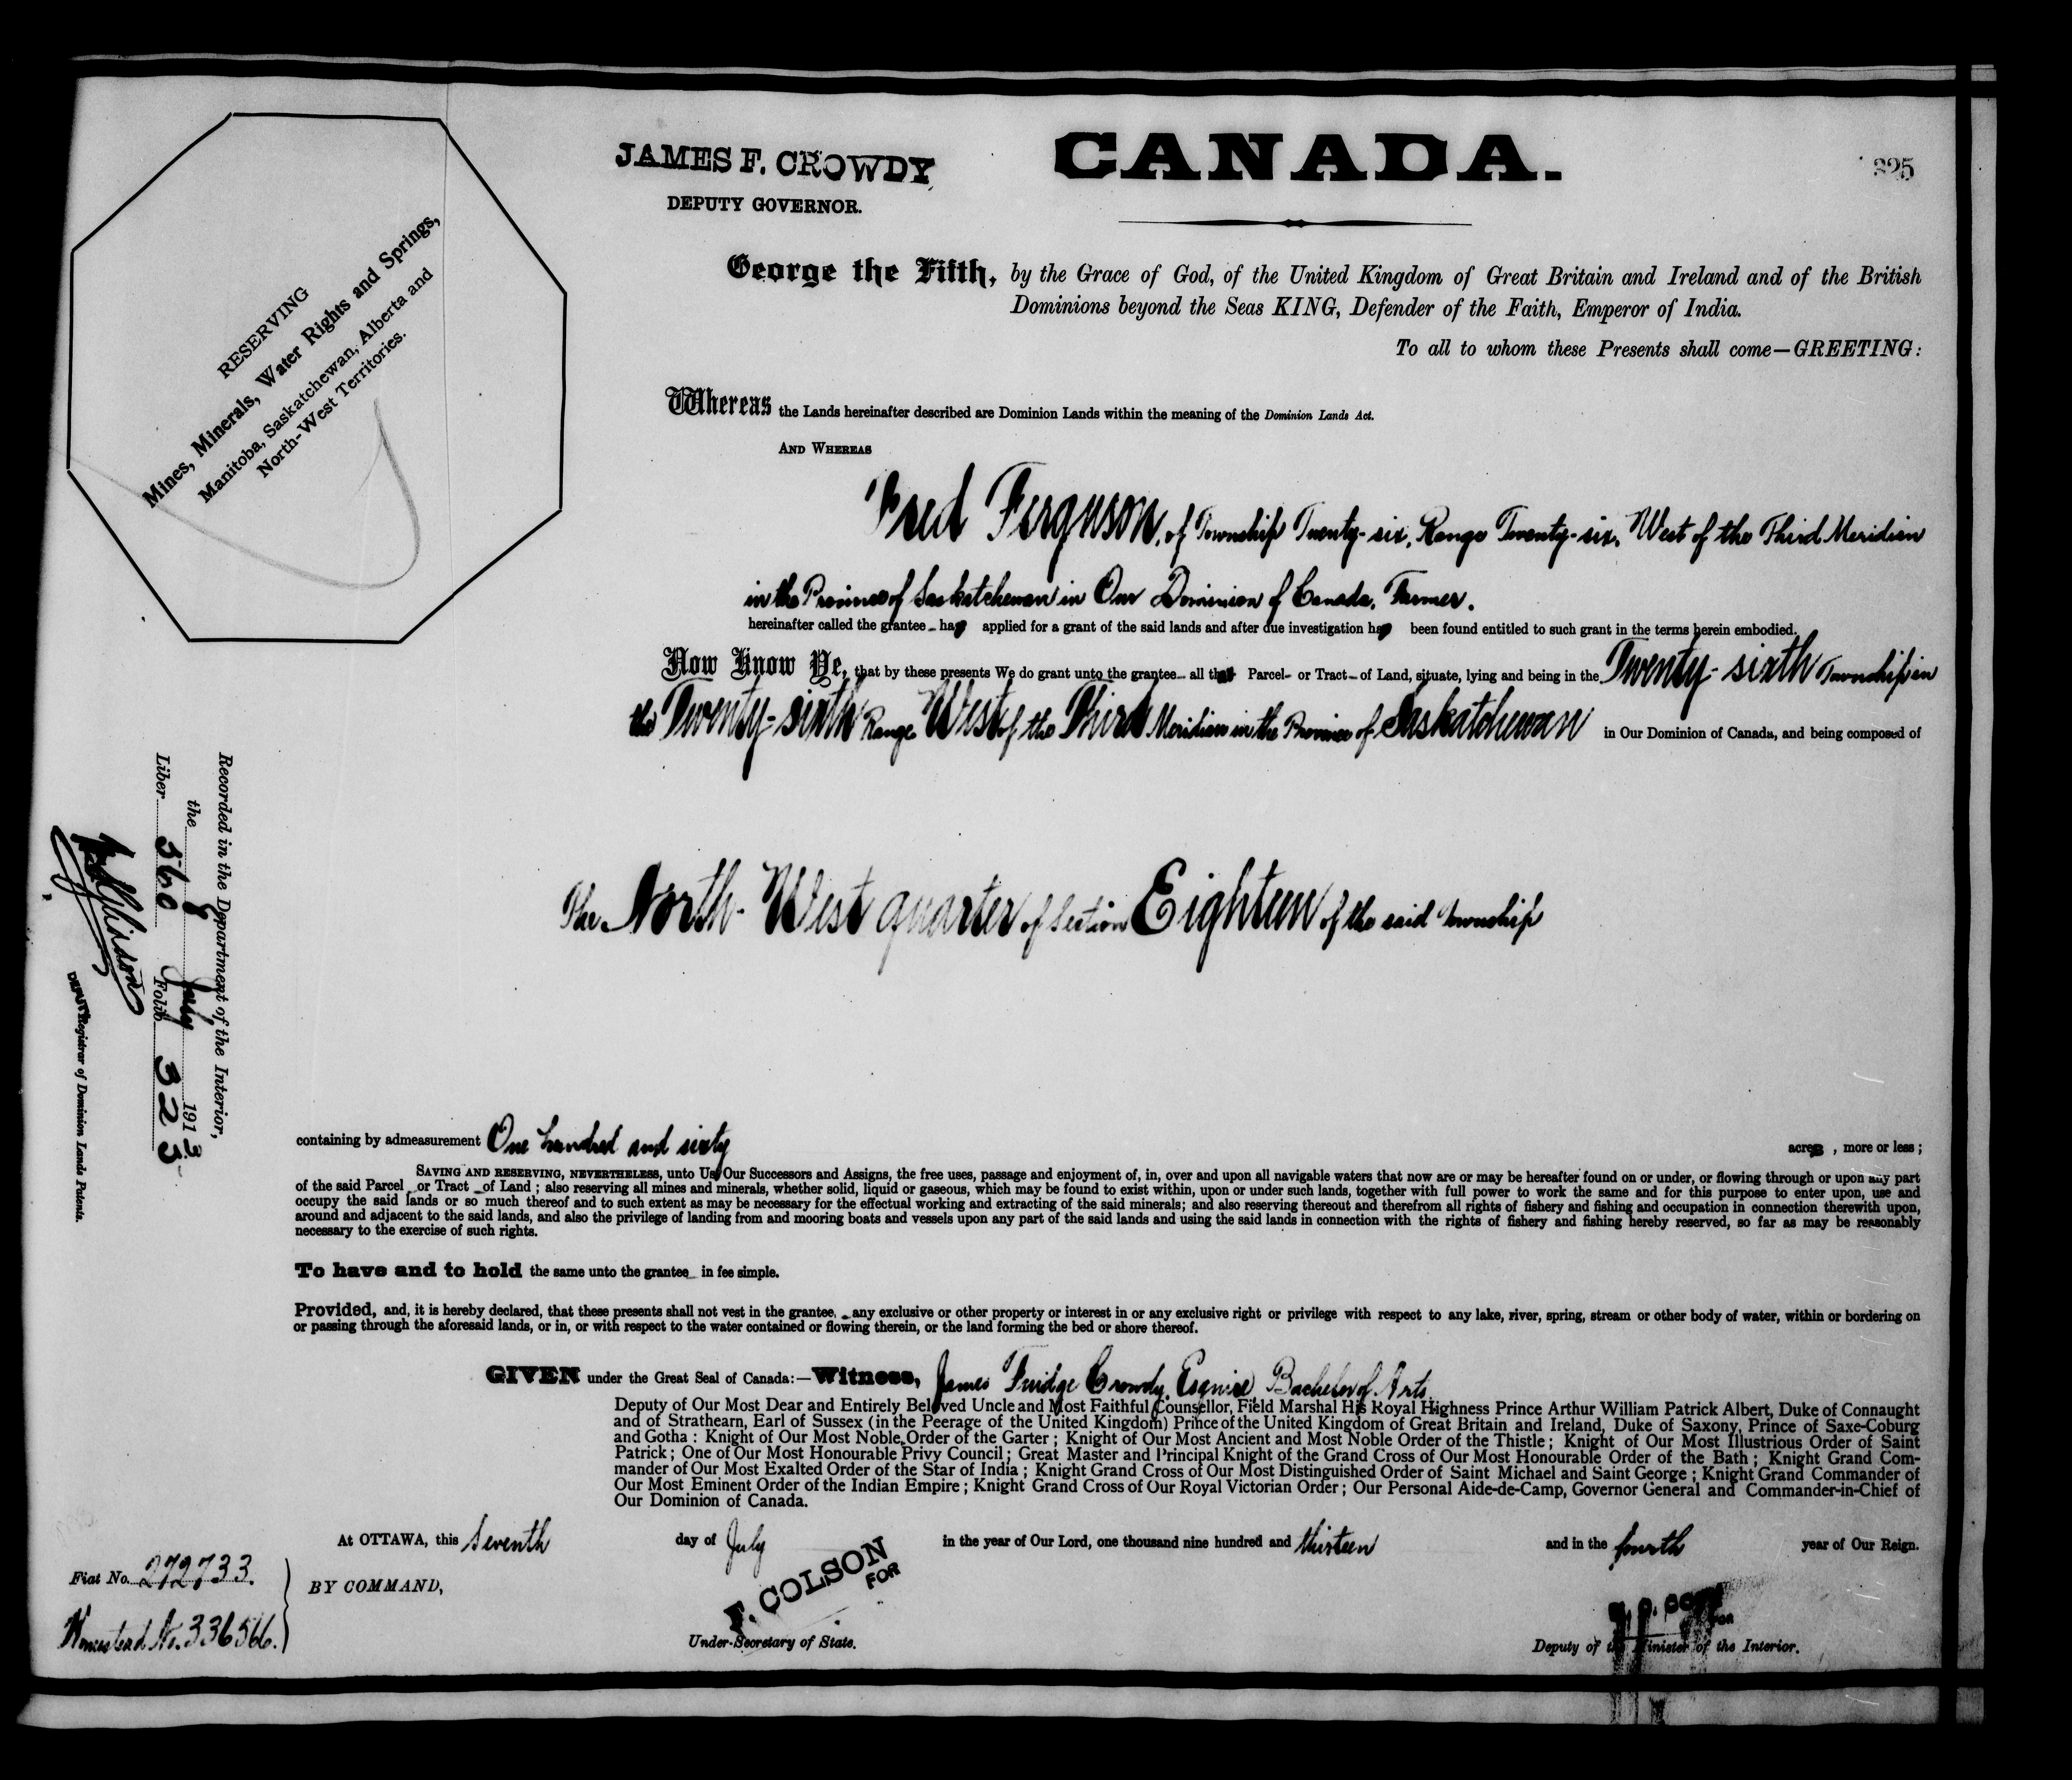 JAMES F. CROWDY
DEPUTY GOVERNOR.
CANADA.
325
RESERVING
Mines, Minerals, Water Rights and Springs,
Manitoba, Saskatchewan, Alberta and
North-West Territories.
George the Fifth, by the Grace of God, of the United Kingdom of Great Britain and Ireland and of the British
Dominions beyond the Seas KING, Defender of the Faith, Emperor of India.
To all to whom these Presents shall come—GREETING:
Whereas the Lands hereinafter described are Dominion Lands within the meaning of the Dominion Lands Act.
AND WHEREAS
Fred Ferguson, of Township Twenty-six, Range Twenty-six, West of the Third Meridian
in the Province of Saskatchewan in Our Dominion of Canada, Farmer.
hereinafter called the grantee has applied for a grant of the said lands and after due investigation has been found entitled to such grant in the terms herein embodied.
Now Know Ye, that by these presents We do grant unto the grantee all that Parcel or Tract of Land, situate, lying and being in the Twenty-sixth Township in
the Twenty-sixth Range West of the Third Meridian in the Province of Saskatchewan in Our Dominion of Canada, and being composed of
The North-West quarter of Section Eighteen of the said Township
Recorded in the Department of the Interior,
the 8 July 1913
Liber 560 Folio 325
DEPUTY Registrar of Dominion Lands Patents.
containing by admeasurement One hundred and sixty acres, more or less;
SAVING AND RESERVING, NEVERTHELESS, unto Us, Our Successors and Assigns, the free uses, passage and enjoyment of, in, over and upon all navigable waters that now are or may be hereafter found on or under, or flowing through or upon any part
of the said Parcel or Tract of Land; also reserving all mines and minerals, whether solid, liquid or gaseous, which may be found to exist within, upon or under such lands, together with full power to work the same and for this purpose to enter upon, use and
occupy the said lands or so much thereof and to such extent as may be necessary for the effectual working and extracting of the said minerals; and also reserving thereout and therefrom all rights of fishery and fishing and occupation in connection therewith upon,
around and adjacent to the said lands, and also the privilege of landing from and mooring boats and vessels upon any part of the said lands and using the said lands in connection with the rights of fishery and fishing hereby reserved, so far as may be reasonably
necessary to the exercise of such rights.
To have and to hold the same unto the grantee in fee simple.
Provided, and, it is hereby declared, that these presents shall not vest in the grantee, any exclusive or other property or interest in or any exclusive right or privilege with respect to any lake, river, spring, stream or other body of water, within or bordering on
or passing through the aforesaid lands, or in, or with respect to the water contained or flowing therein, or the land forming the bed or shore thereof.
GIVEN under the Great Seal of Canada:—Witness, James Fuidge Crowdy, Esquire, Bachelor of Arts,
Deputy of Our Most Dear and Entirely Beloved Uncle and Most Faithful Counsellor, Field Marshal His Royal Highness Prince Arthur William Patrick Albert, Duke of Connaught
and of Strathearn, Earl of Sussex (in the Peerage of the United Kingdom) Prince of the United Kingdom of Great Britain and Ireland, Duke of Saxony, Prince of Saxe-Coburg
and Gotha: Knight of Our Most Noble Order of the Garter; Knight of Our Most Ancient and Most Noble Order of the Thistle; Knight of Our Most Illustrious Order of Saint
Patrick; One of Our Most Honourable Privy Council; Great Master and Principal Knight of the Grand Cross of Our Most Honourable Order of the Bath; Knight Grand Com-
mander of Our Most Exalted Order of the Star of India; Knight Grand Cross of Our Most Distinguished Order of Saint Michael and Saint George; Knight Grand Commander of
Our Most Eminent Order of the Indian Empire; Knight Grand Cross of Our Royal Victorian Order; Our Personal Aide-de-Camp, Governor General and Commander-in-Chief of
Our Dominion of Canada.
At OTTAWA, this Seventh day of July in the year of Our Lord, one thousand nine hundred and thirteen and in the fourth year of Our Reign.
Fiat No. 272733.
BY COMMAND,
Homestead No. 336566.
F. COLSON
FOR
Under-Secretary of State.
FOR
Deputy of the Minister of the Interior.